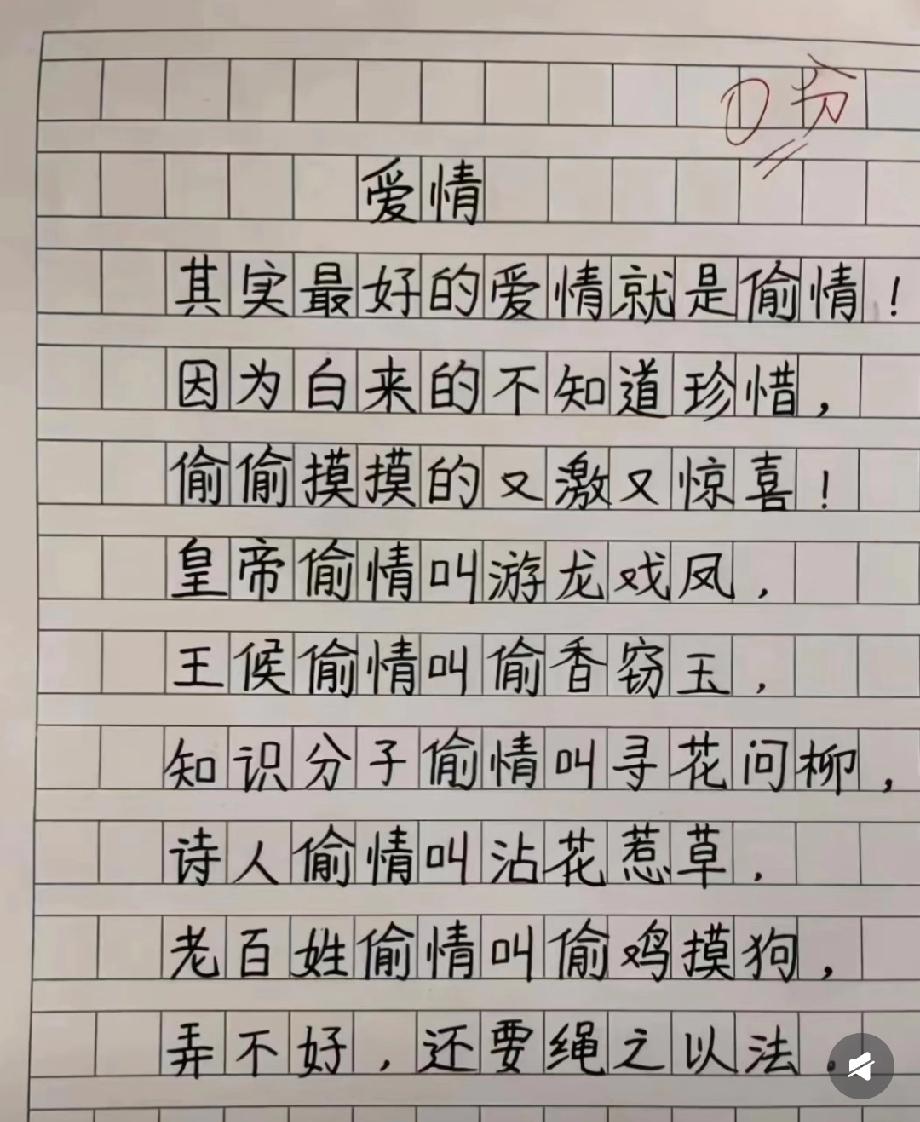 0分
爱情
其实最好的爱情就是偷情！
因为白来的不知道珍惜，
偷偷摸摸的又激又惊喜！
皇帝偷情叫游龙戏凤，
王候偷情叫偷香窃玉，
知识分子偷情叫寻花问柳，
诗人偷情叫沾花惹草，
老百姓偷情叫偷鸡摸狗，
弄不好，还要绳之以法。